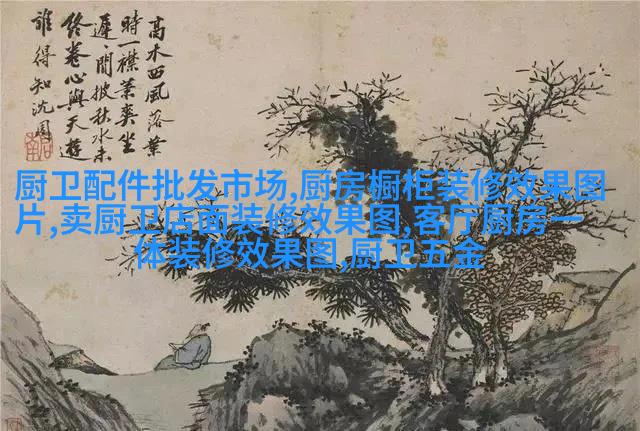 高木西風落葉
時一襟蕭爽坐
遲〻閒披秋水未
終卷心與天遊
誰得知沈周
厨卫配件批发市场,厨房橱柜装修效果图
片,卖厨卫店面装修效果图,客厅厨房一
体装修效果图,厨卫五金